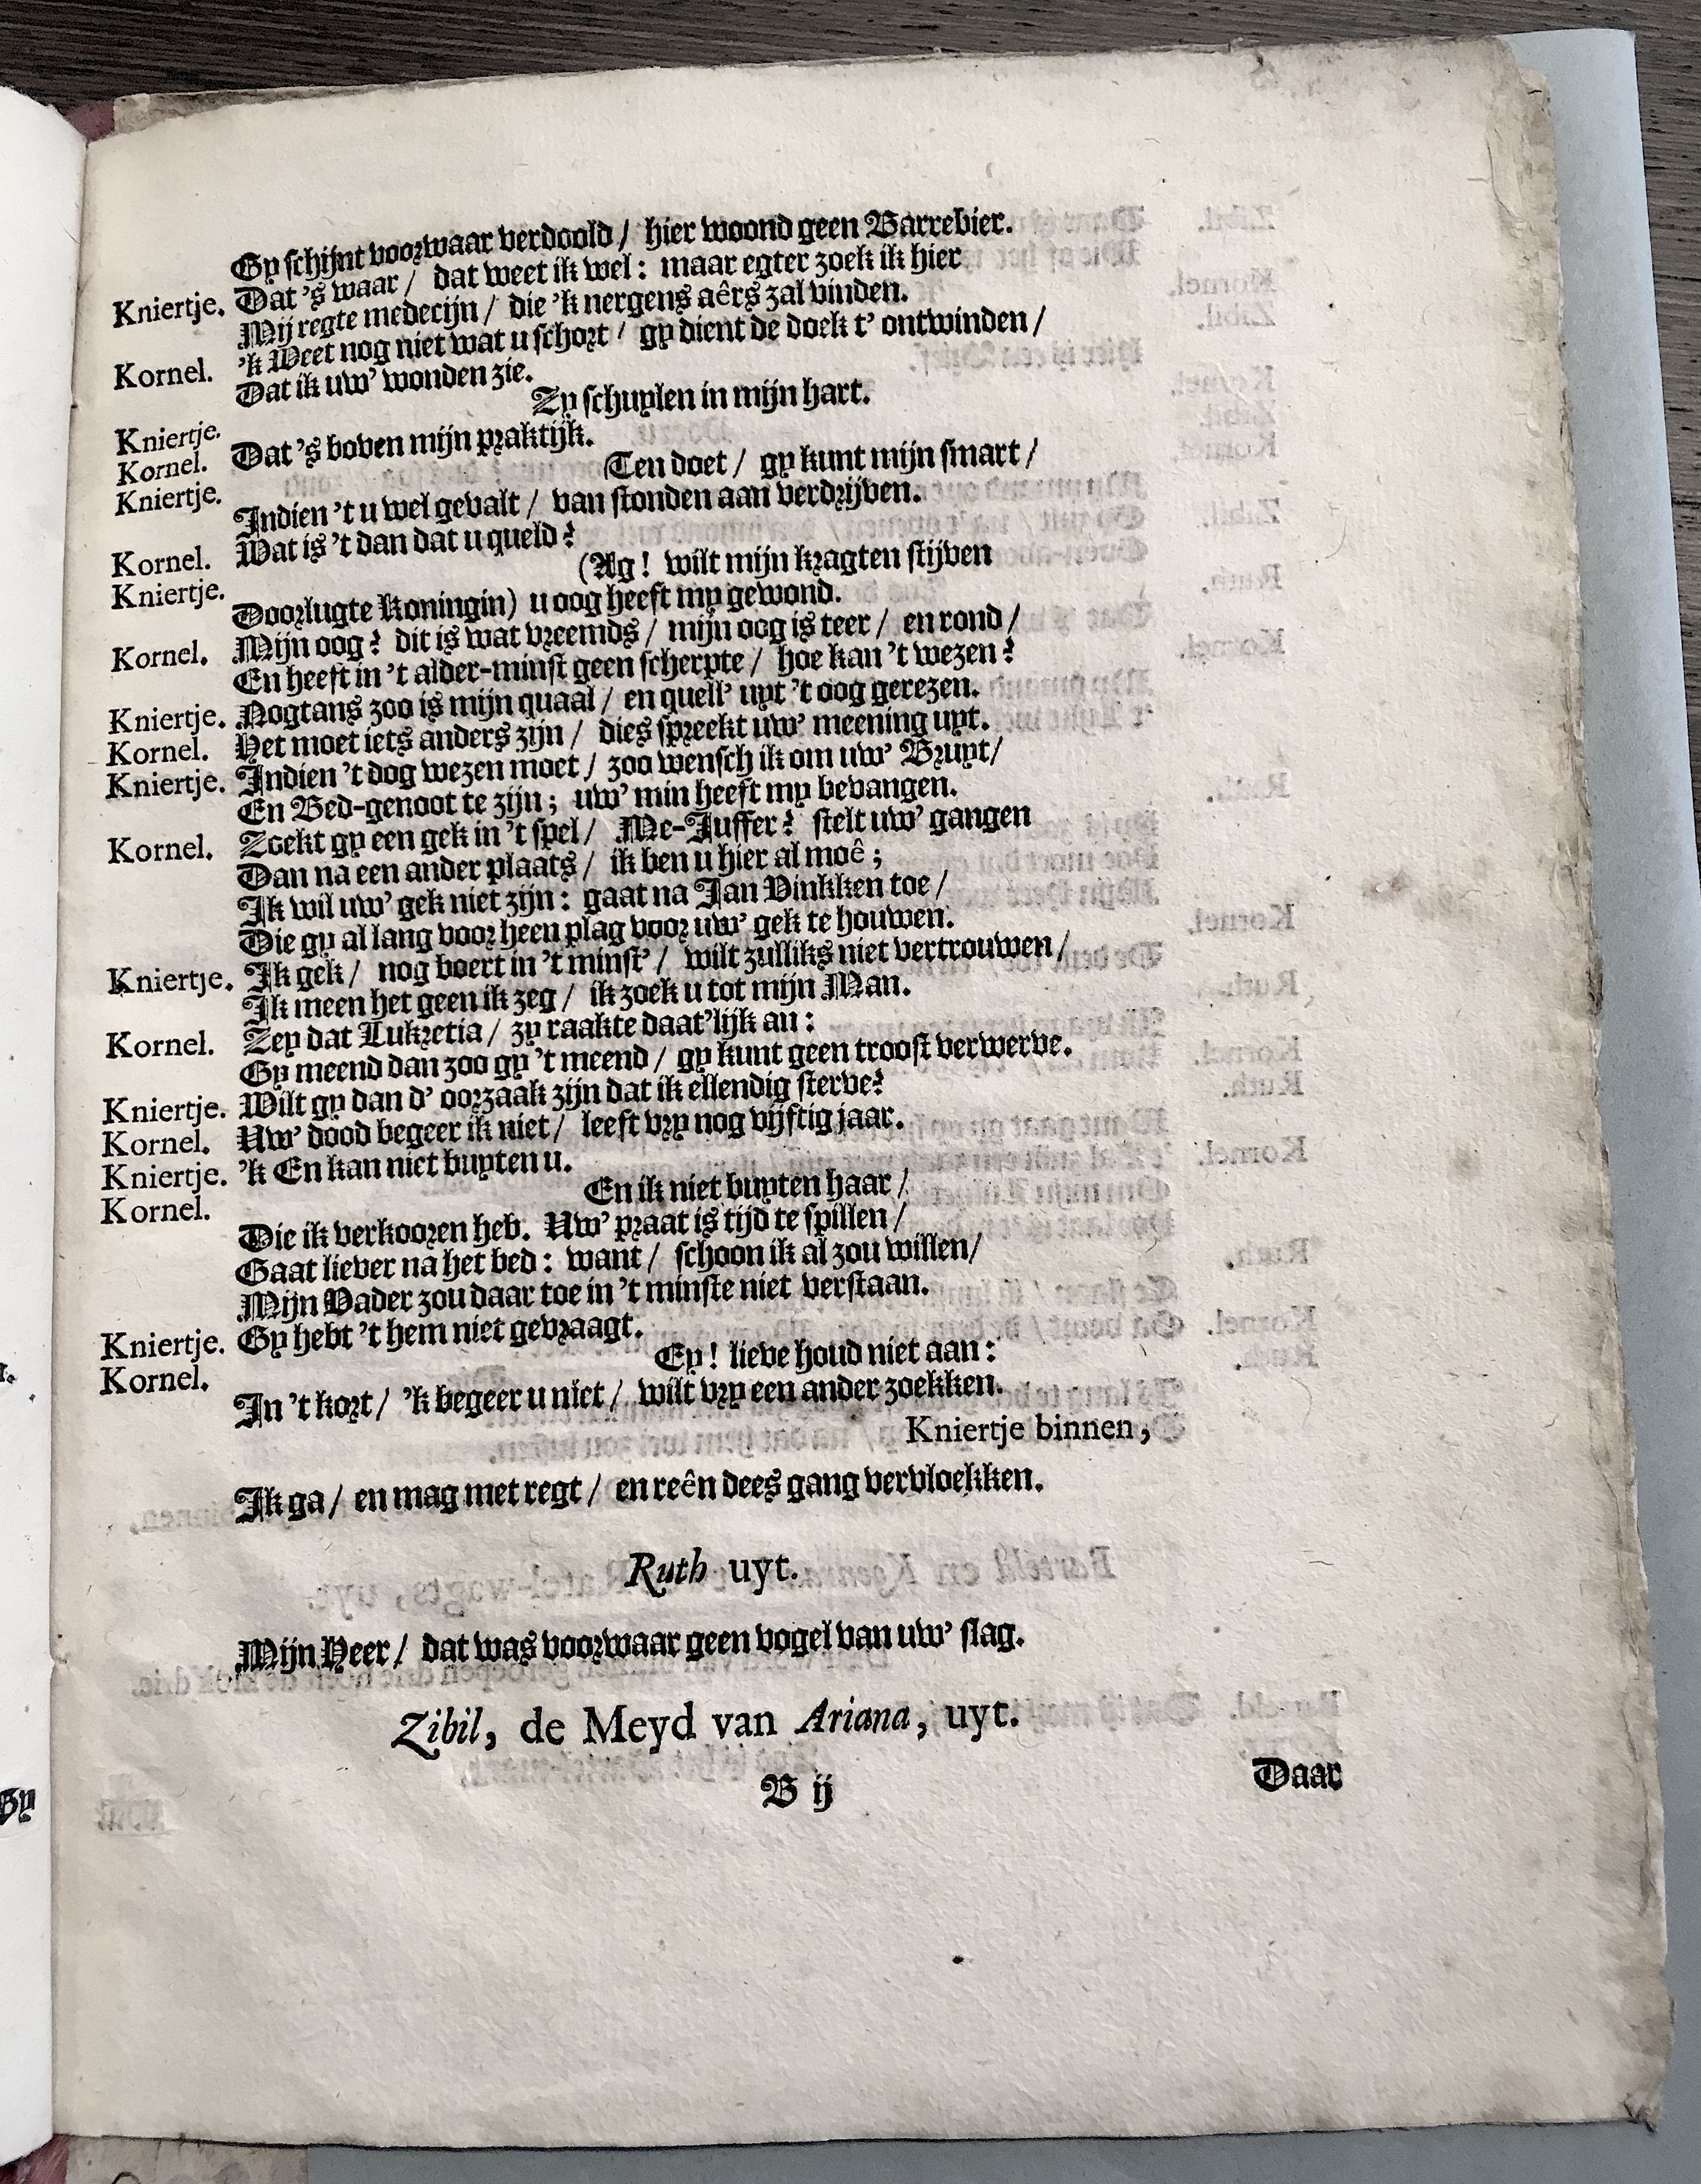 Gy schijnt voorwaar verdoold / hier woond geen Barrebier.
Kniertje. Dat 's waar / dat weet ik wel: maar egter zoek ik hier
Mij regte medecijn / die 'k nergens aêrs zal vinden.
Kornel. 'k Weet nog niet wat u schort / gy dient de doek t' ontwinden /
Dat ik uw' wonden zie.
Kniertje. Zy schuylen in mijn hart.
Kornel. Dat 's boven mijn praktijk.
Kniertje. Ten doet / gy kunt mijn smart /
Indien 't u wel gevalt / van stonden aan verdrijven.
Kornel. Wat is 't dan dat u queld?
Kniertje. (Ag! wilt mijn kragten stijven
Doorlugte Koningin) u oog heeft my gewond.
Kornel. Mijn oog? dit is wat vreemds / mijn oog is teer / en rond /
En heeft in 't alder-minst geen scherpte / hoe kan 't wezen?
Kniertje. Nogtans zoo is mijn quaal / en quell' uyt 't oog gerezen.
Kornel. Het moet iets anders zijn / dies spreekt uw' meening uyt.
Kniertje. Indien 't dog wezen moet / zoo wensch ik om uw' Bruyt /
En Bed-genoot te zijn; uw' min heeft my bevangen.
Kornel. Zoekt gy een gek in 't spel / Me-Juffer? stelt uw' gangen
Dan na een ander plaats / ik ben u hier al moê;
Ik wil uw' gek niet zijn: gaat na Jan Vinkken toe /
Die gy al lang voor heen plag voor uw' gek te houwen.
Kniertje. Ik gek / nog boert in 't minst' / wilt zulliks niet vertrouwen /
Ik meen het geen ik zeg / ik zoek u tot mijn Man.
Kornel. Zey dat Lukretia / zy raakte daat'lijk an:
Gy meend dan zoo gy 't meend / gy kunt geen troost verwerve.
Kniertje. Wilt gy dan d' oorzaak zijn dat ik ellendig sterve?
Kornel. Uw' dood begeer ik niet / leeft vry nog vijftig jaar.
Kniertje. 'k En kan niet buyten u.
Kornel. En ik niet buyten haar /
Die ik verkooren heb. Uw' praat is tijd te spillen /
Gaat liever na het bed: want / schoon ik al zou willen /
Mijn Vader zou daar toe in 't minste niet verstaan.
Kniertje. Gy hebt 't hem niet gevraagt.
Kornel. Ey! lieve houd niet aan:
In 't kort / 'k begeer u niet / wilt vry een ander zoekken.
Kniertje binnen,
Ik ga / en mag met regt / en reên dees gang vervloekken.
Ruth uyt.
Mijn Heer / dat was voorwaar geen vogel van uw' slag.
Zibil, de Meyd van Ariana, uyt.
B ij
Daar
Gy